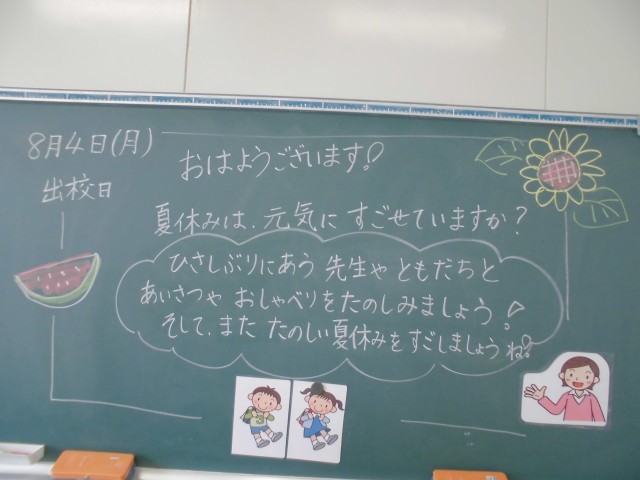 8月4日(月)
出校日
おはようございます!
夏休みは、元気に すごせていますか?
ひさしぶりにあう 先生や ともだちと
あいさつや おしゃべりをたのしみましょう!
そして、また たのしい夏休みを すごしましょうね!